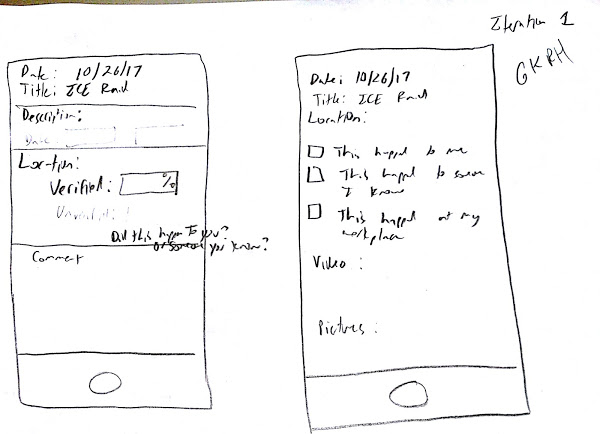 Iteration 1
GKRH
Date: 10/26/17
Title: ICE Raid
Description:
Date
Location:
Verified: %
Did this happen to you?
or someone you know?
Comment
Date: 10/26/17
Title: ICE Raid
Location:
This happd to me
This happd to someone
I know
This happd at my
workplace
Video :
Pictures :